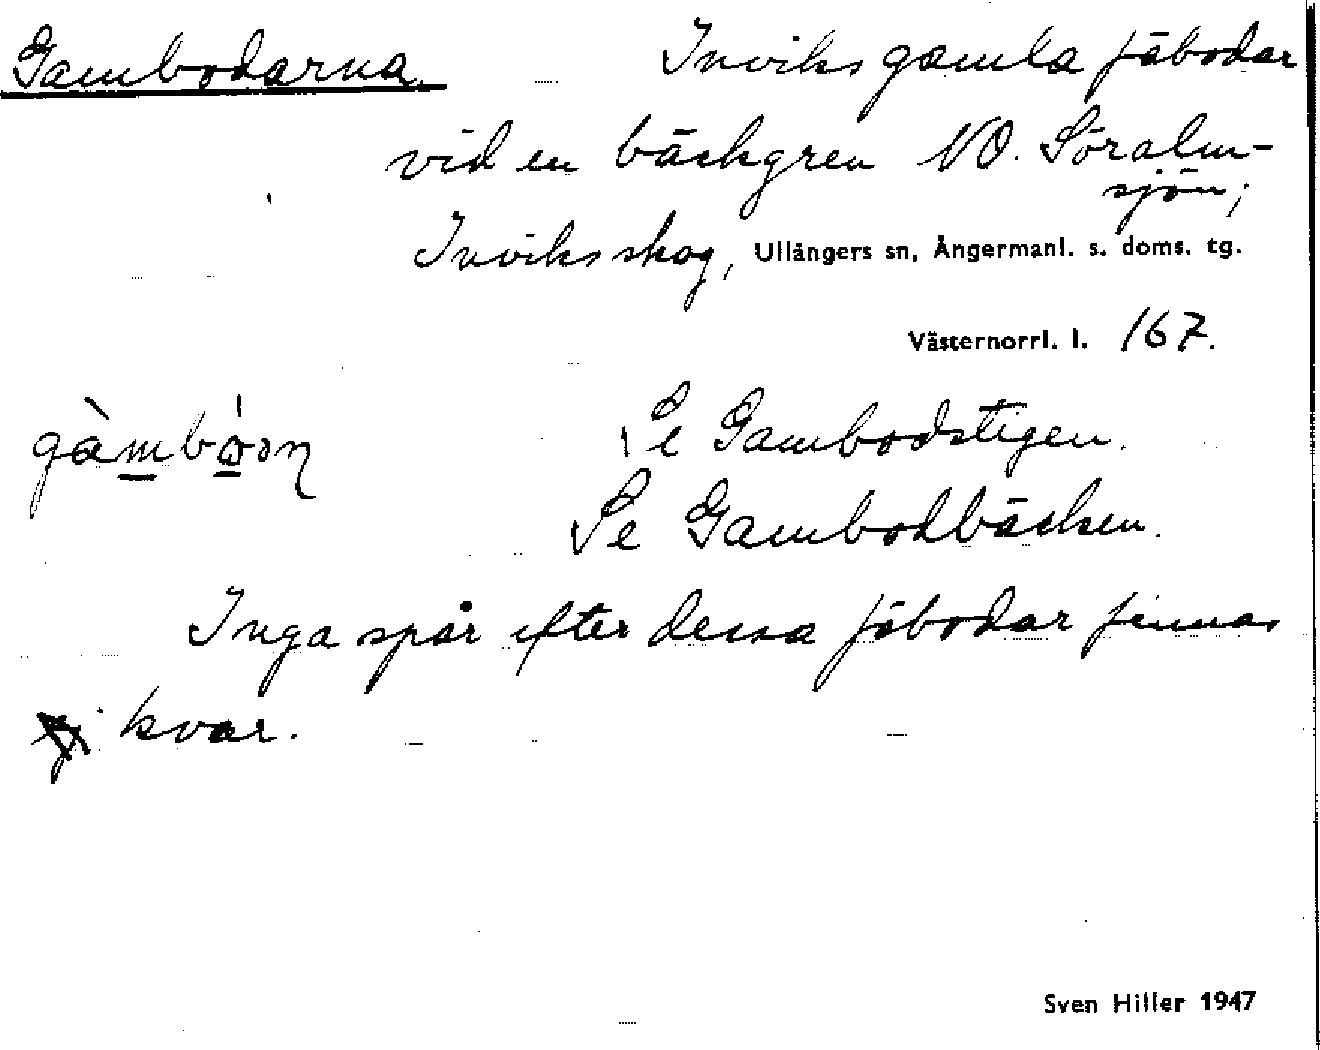 Gambodarna. Inviks gamla fäbodar
vid en bäckgren NO. Söralm-
sjön;
Inviks skog, Ullångers sn, Ångermanl. s. doms. tg.
Västernorrl. l. 167.
Se Gambodstigen.
Se Gambodbäcken.
Inga spår efter dessa fäbodar finnas
kvar.
Sven Hiller 1947